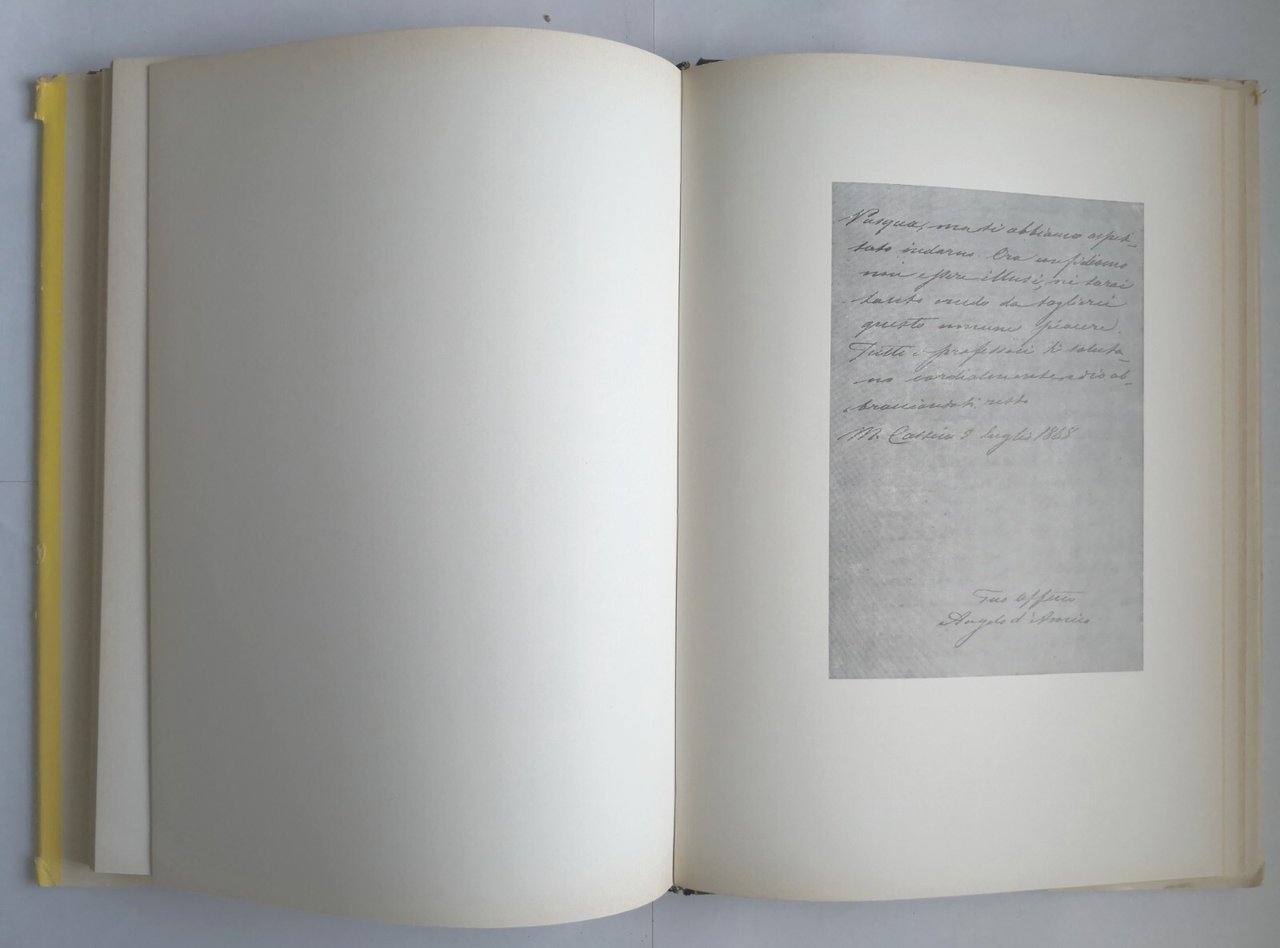 Pasqua, ma ti abbiamo aspet-
tato indarno. Ora confidiamo
non essere illusi, nè sarai
tanto crudo da toglierci
questo comune piacere.
Tutti i professori ti saluta-
no cordialmente, ed io ab-
bracciandoti resto
M. Cassino 9 luglio 1868
Tuo affmo
Angelo d'Amico